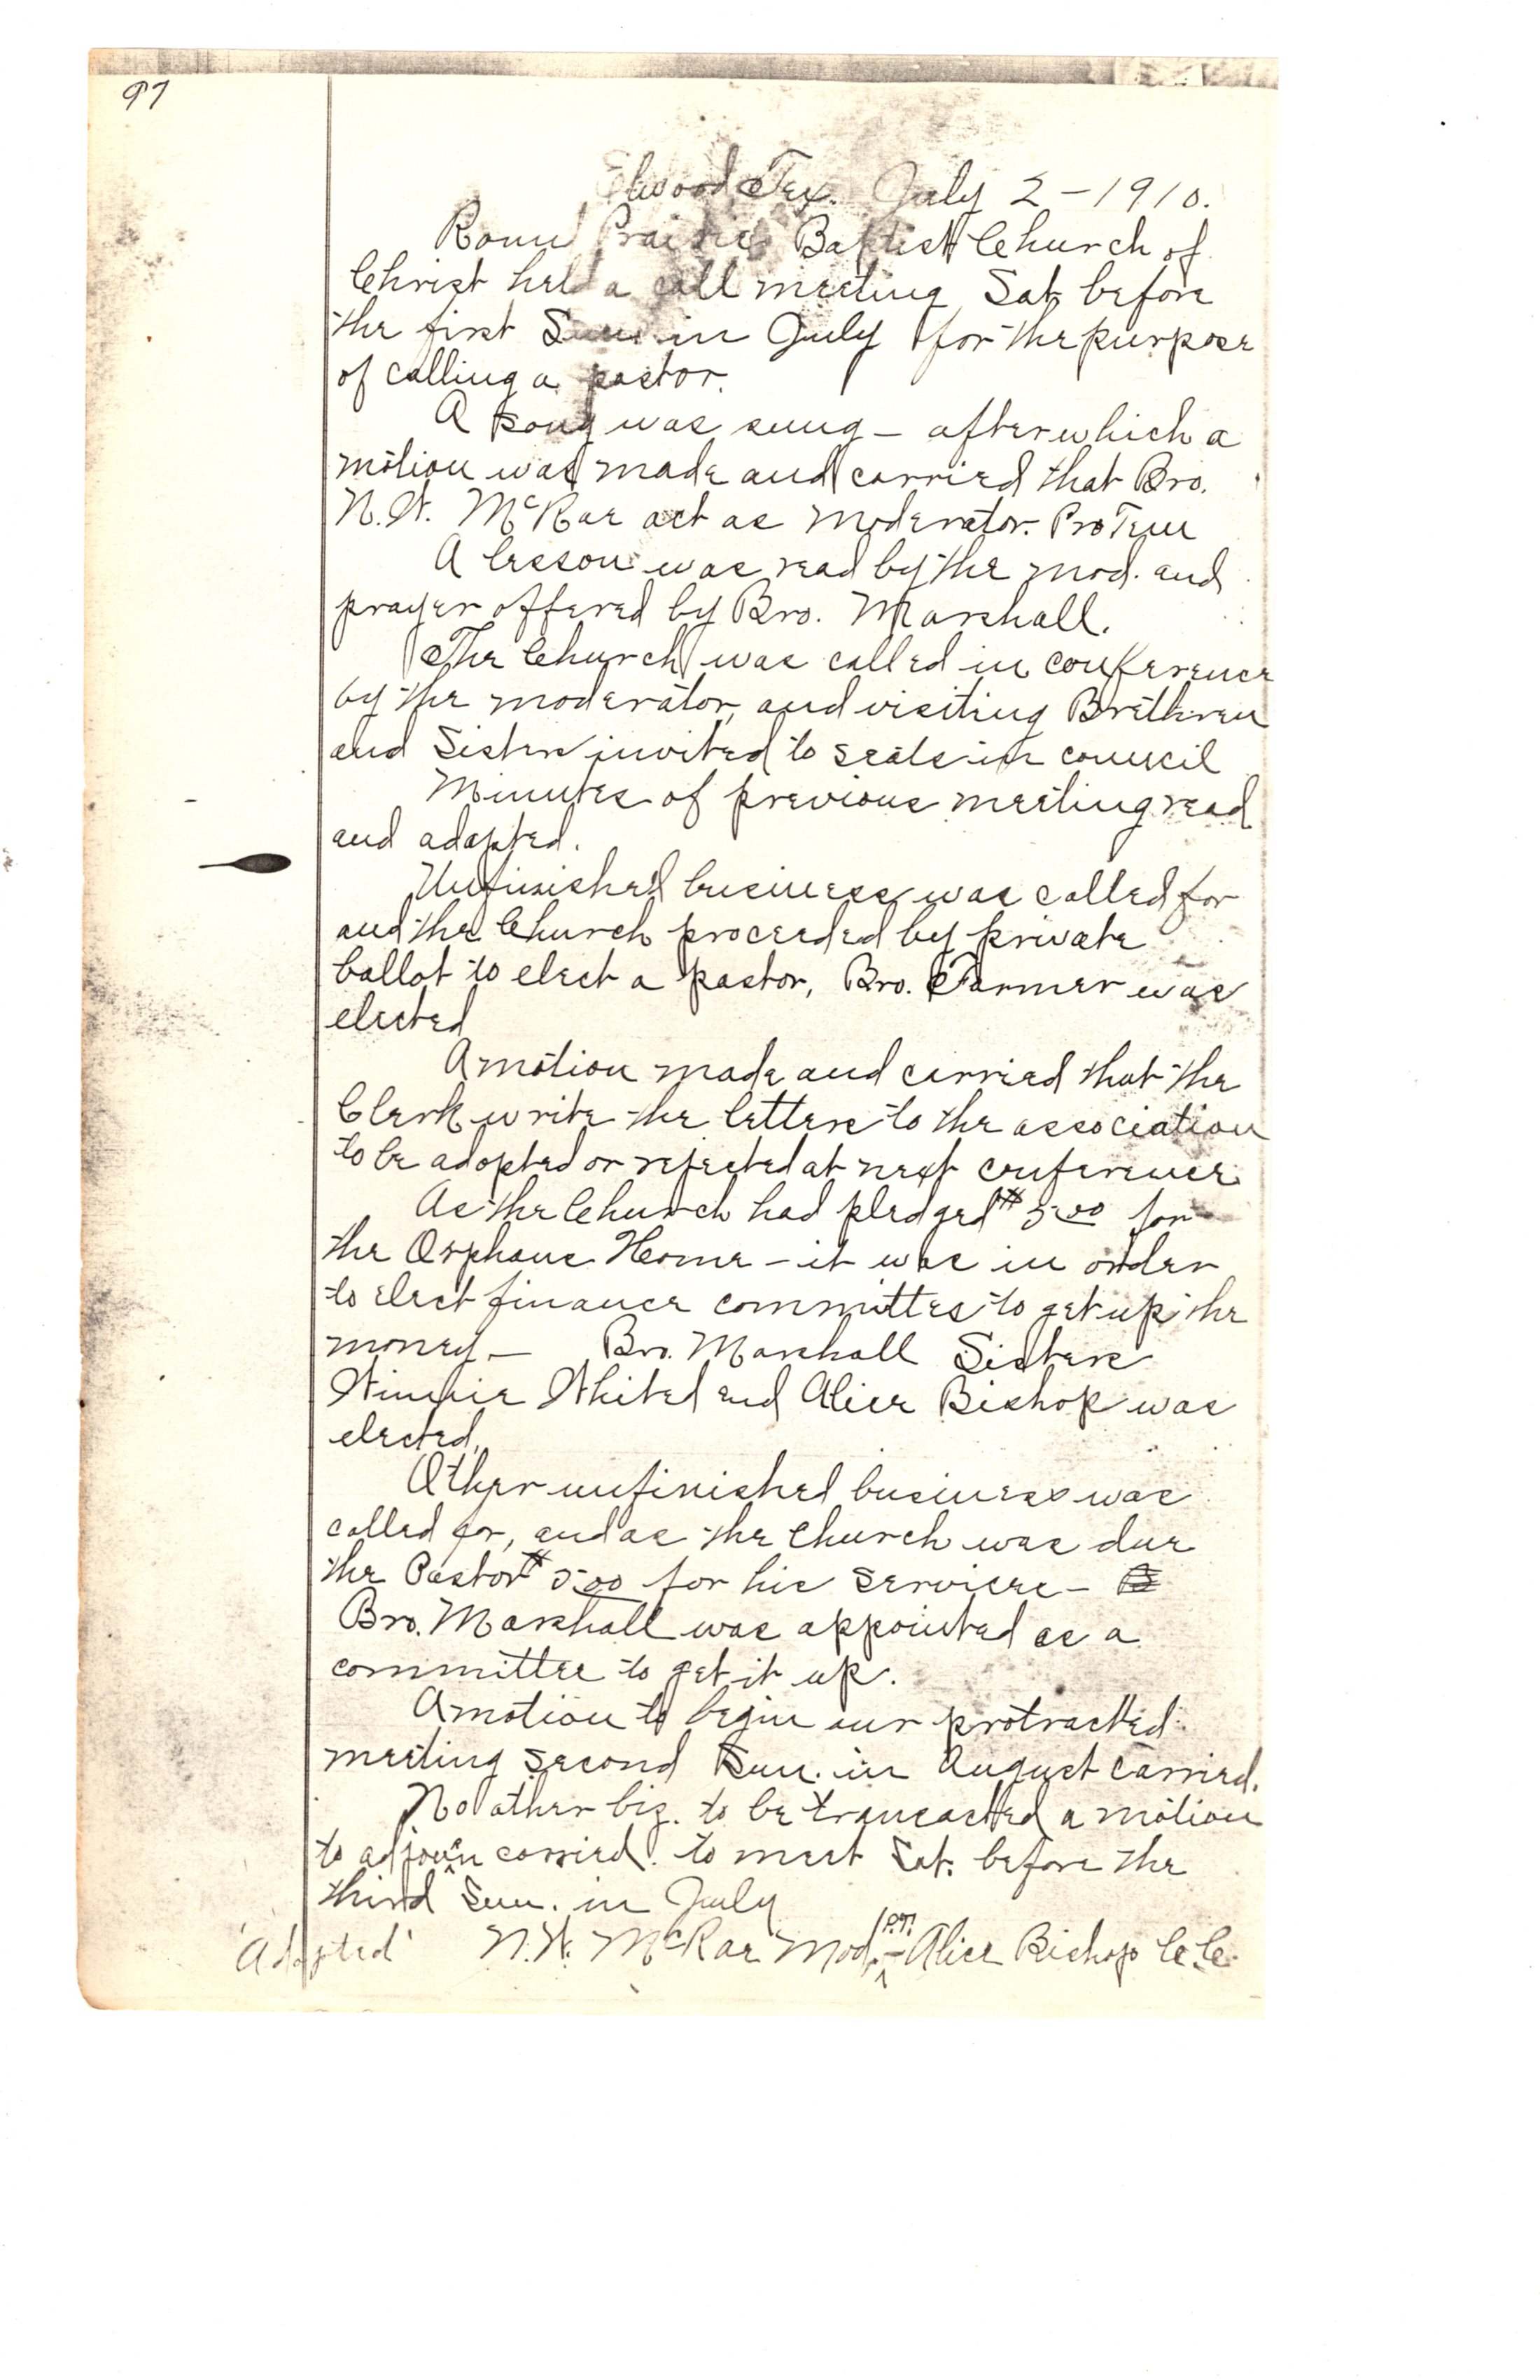 97
Elwood Tex. July 2 - 1910.
Roun Prairie Baptist Church of
Christ held a call meeting Sat before
the first Sun in July for the purpose
of calling a pastor.
A song was sung - after which a
motion was made and carried that Bro.
N. W. McRae act as moderator. Pro Tem
A lesson was read by the mod. and
prayer offered by Bro. Marshall.
The Church was called in conference
by the moderator, and visiting Brethren
and Sisters invited to seats in council
Minutes of previous meeting read
and adopted.
Unfinished business was called for
and the Church proceeded by private
ballot to elect a pastor, Bro. Farmer was
elected
A motion made and carried that the
Clerk write the letters to the association
to be adopted or rejected at next conference.
As the Church had pledged $5.00 for
the Orphans Home - it was in order
to elect finance committee to get up the
money - Bro. Marshall Sisters
Whited and Alice Bishop was
elected.
Other unfinished business was
called for, and as the Church was due
the Pastor $5.00 for his services -
Bro. Marshall was appointed as a
committee to get it up.
A motion to begin our protracted
meeting second Sun. in August carried.
No other biz. to be transacted a motion
to adjourn carried. to meet Sat. before the
third Sun. in July
'Adopted' N. W. McRae Mod. P.T. - Alice Bishop C.C.